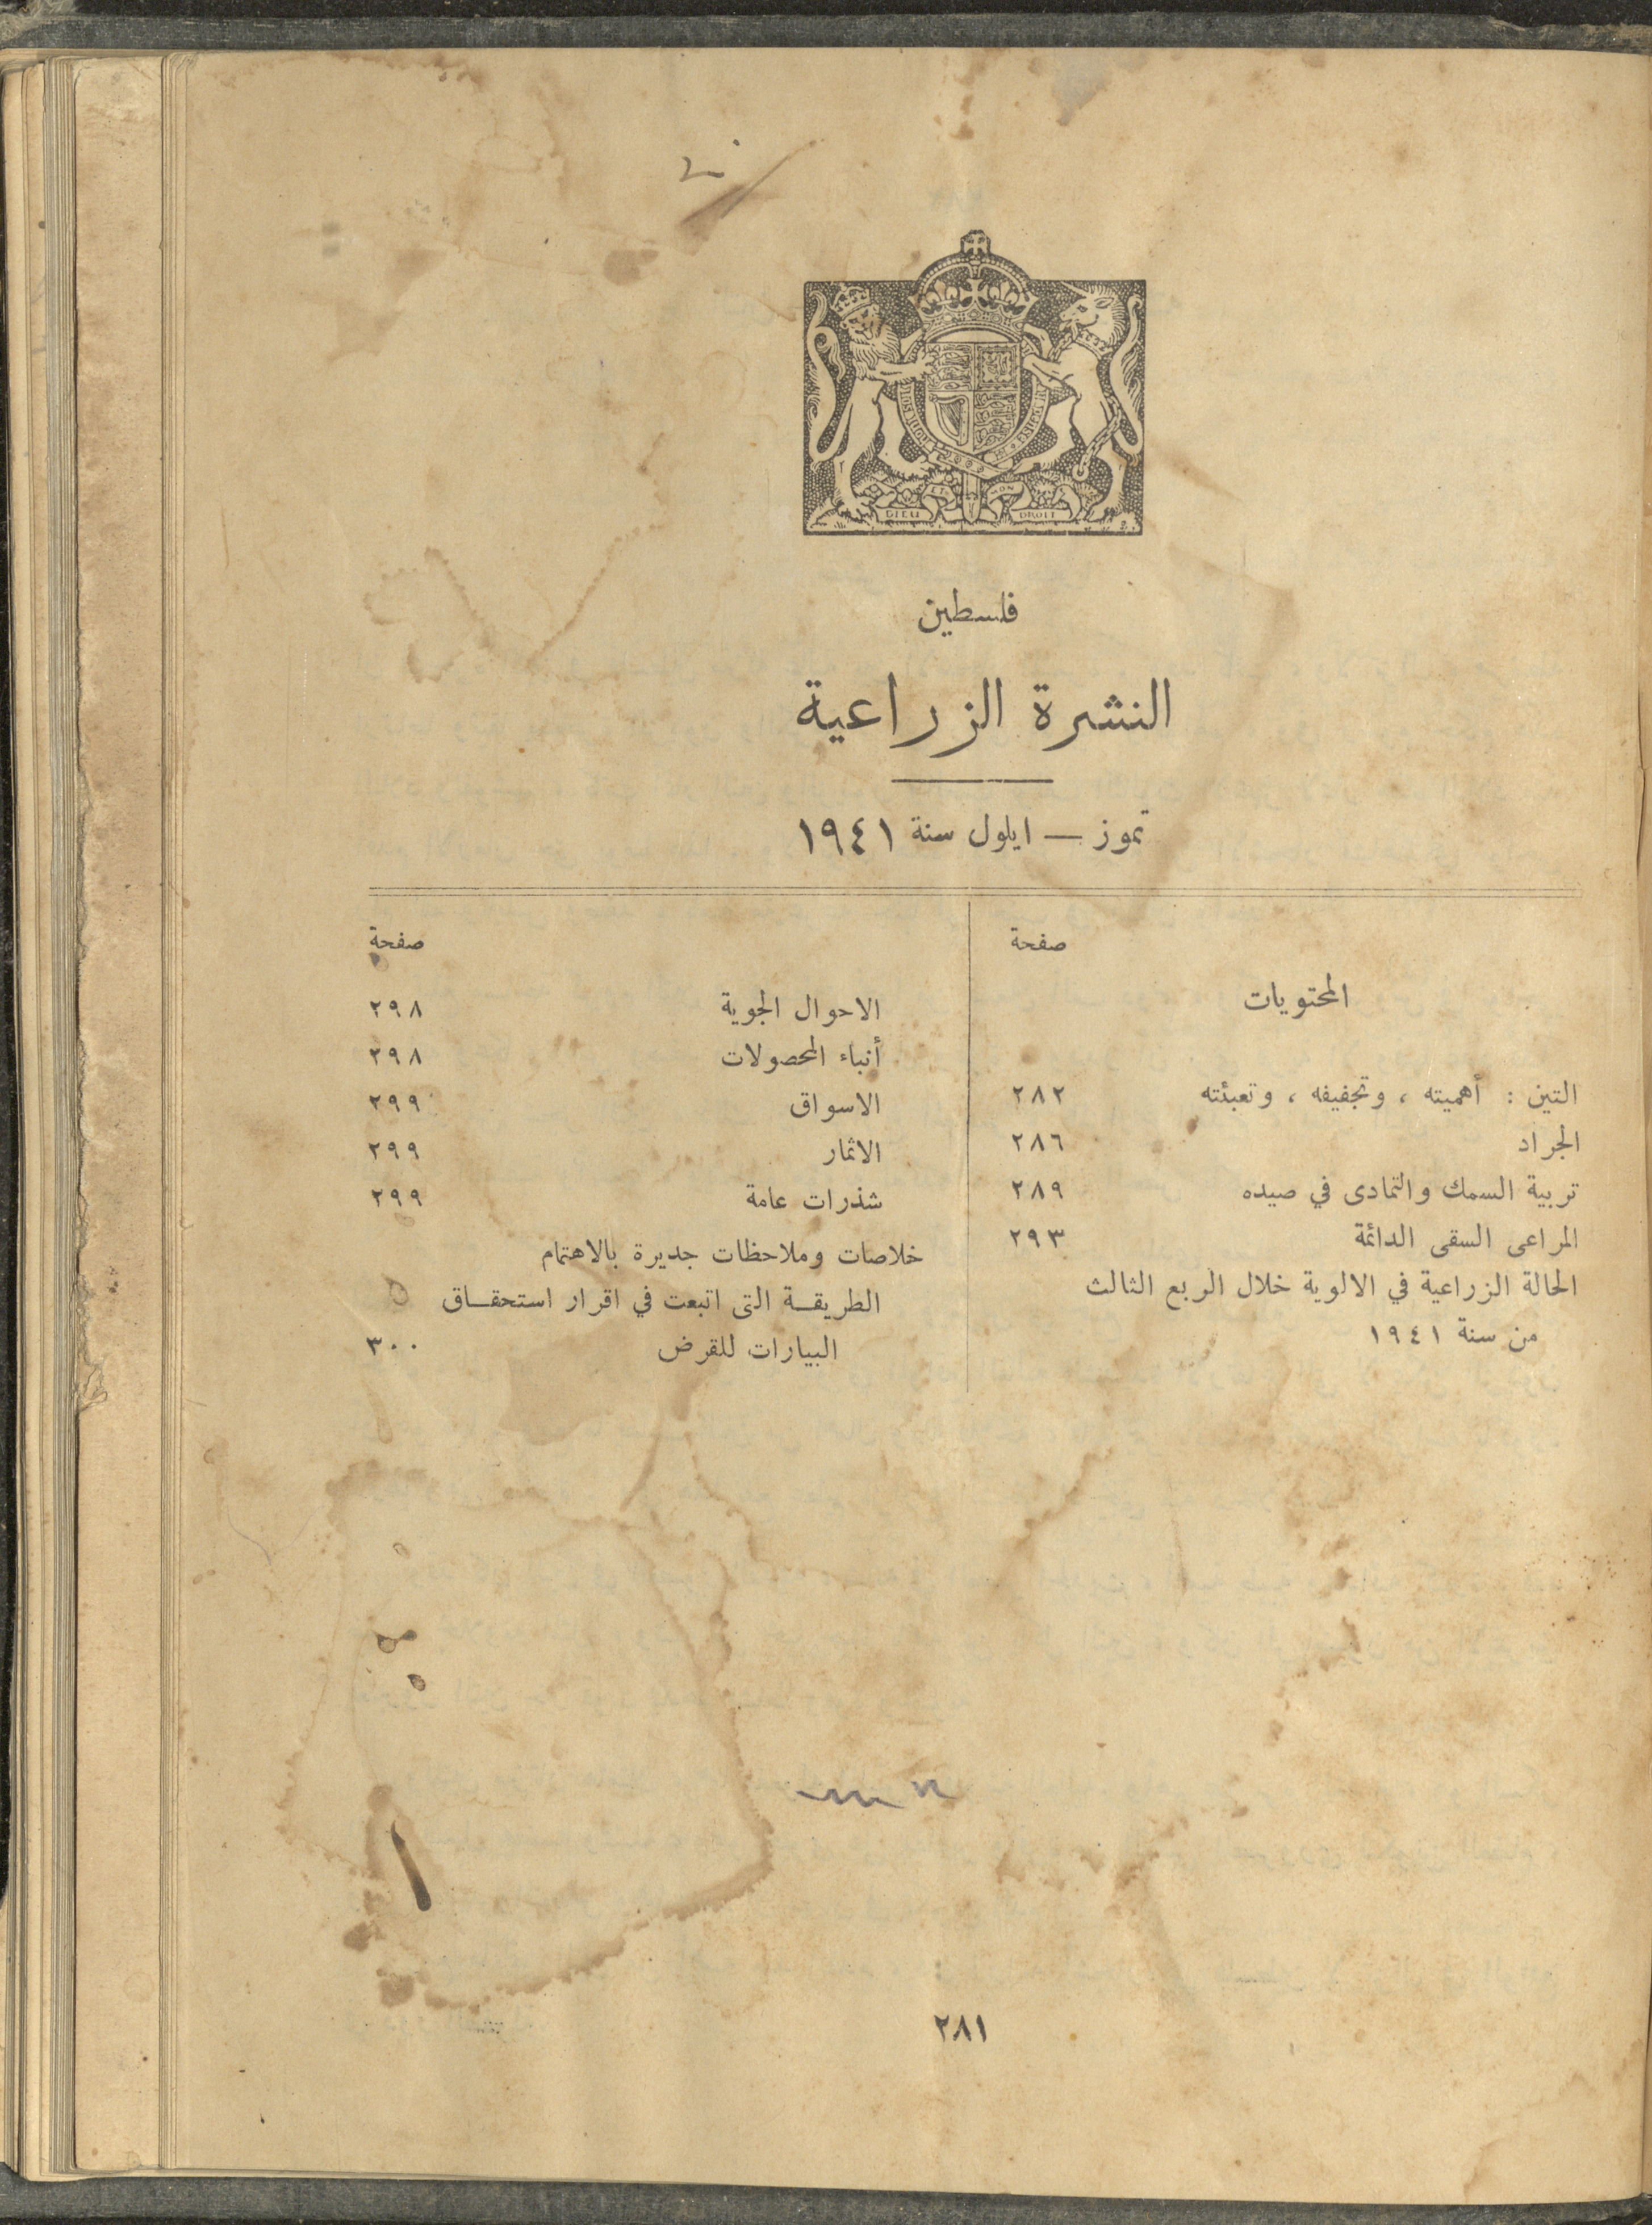 DIEU ET MON DROIT
فلسطين
النشرة الزراعية
تموز — ايلول سنة ١٩٤١
صفحة
المحتويات
التين : أهميته ، وتجفيفه ، وتعبئته ٢٨٢
الجراد ٢٨٦
تربية السمك والتمادى في صيده ٢٨٩
المراعى السقى الدائمة ٢٩٣
الحالة الزراعية في الالوية خلال الربع الثالث
من سنة ١٩٤١
صفحة
الاحوال الجوية ٢٩٨
أنباء المحصولات ٢٩٨
الاسواق ٢٩٩
الاثمار ٢٩٩
شذرات عامة ٢٩٩
خلاصات وملاحظات جديرة بالاهتمام
الطريقـة التى اتبعت في اقرار استحقـاق
البيارات للقرض ٣٠٠
٢٨١